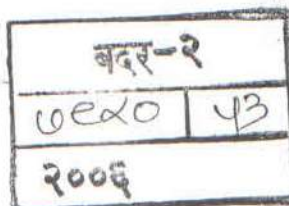 बदर-२
७९४० ५३
२००६